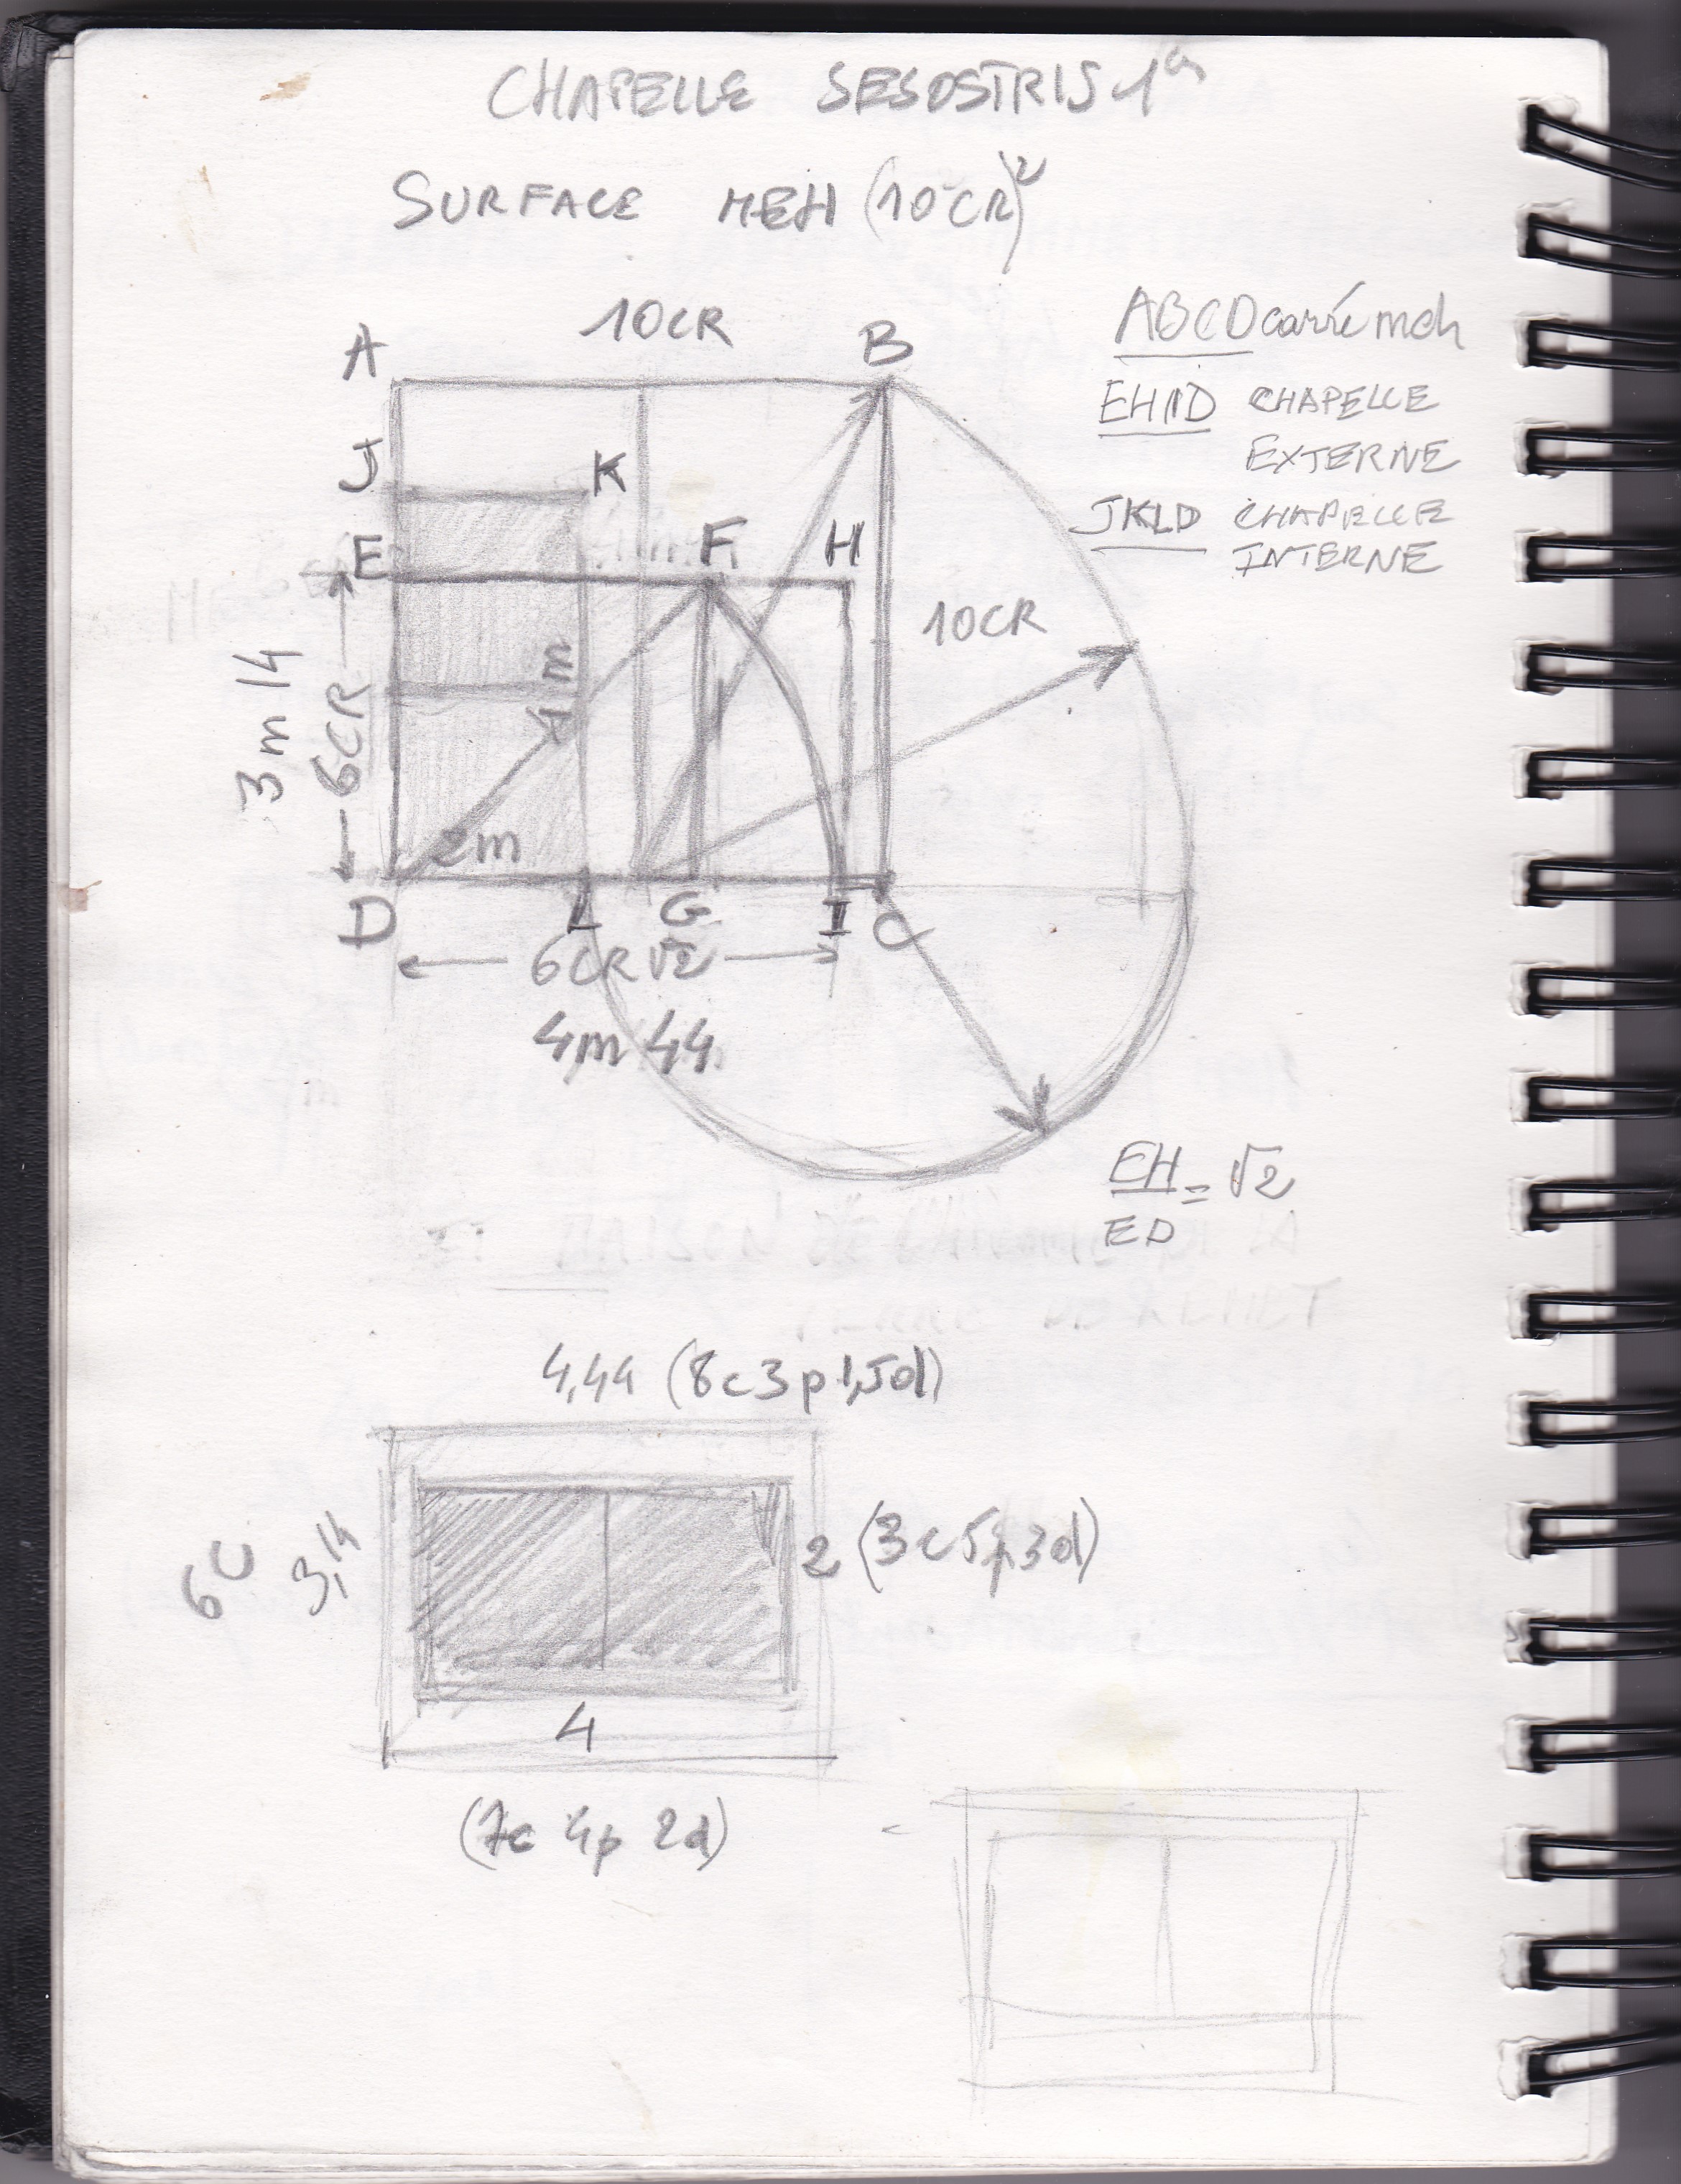 CHAPELLE SESOSTRIS 1er
SURFACE MEH (10 CR)²
10CR
A
B
ABCD carré meh
EHID CHAPELLE
EXTERNE
JKLD CHAPELLE
INTERNE
J
K
E
F
H
10CR
3m14
6CR
4m
2m
D
L
G
I
C
6CR√2
4m44
EH = √2
ED
4,44 (8c3p1,5d)
6C
3,14
2 (3c5p3d)
4
(7c 4p 2d)